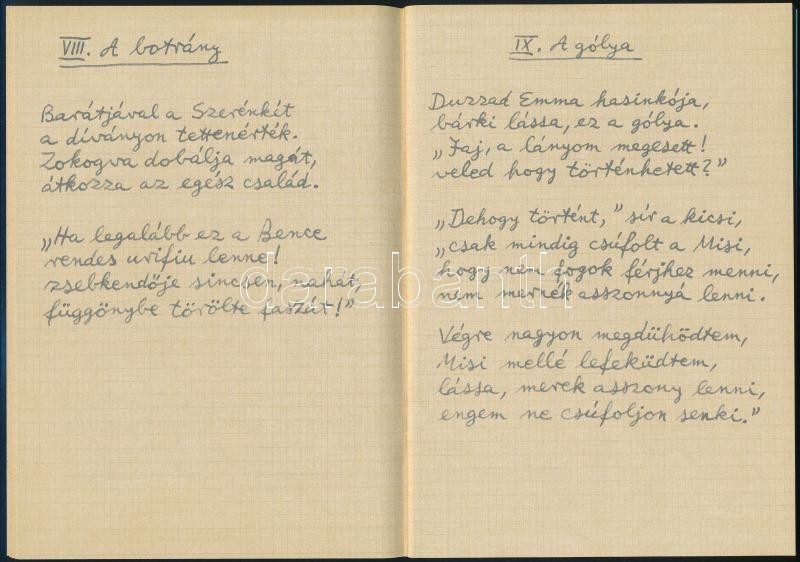 VIII. A botrány
Barátjával a Szerénkét
a díványon tettenérték.
Zokogva dobálja magát,
átkozza az egész család.
„Ha legalább ez a Bence
rendes urifiu lenne!
zsebkendője sincsen, nahát,
függönybe törölte faszát!”
IX. A gólya
Duzzad Emma hasinkója,
bárki lássa, ez a gólya.
„Jaj, a lányom megesett!
veled hogy történhetett?”
„Dehogy történt,” sír a kicsi,
„csak mindig csúfolt a Misi,
hogy nem fogok férjhez menni,
nem mernék asszonnyá lenni.
Végre nagyon megdühödtem,
Misi mellé lefeküdtem,
lássa, merek asszony lenni,
engem ne csúfoljon senki.”
darabanth